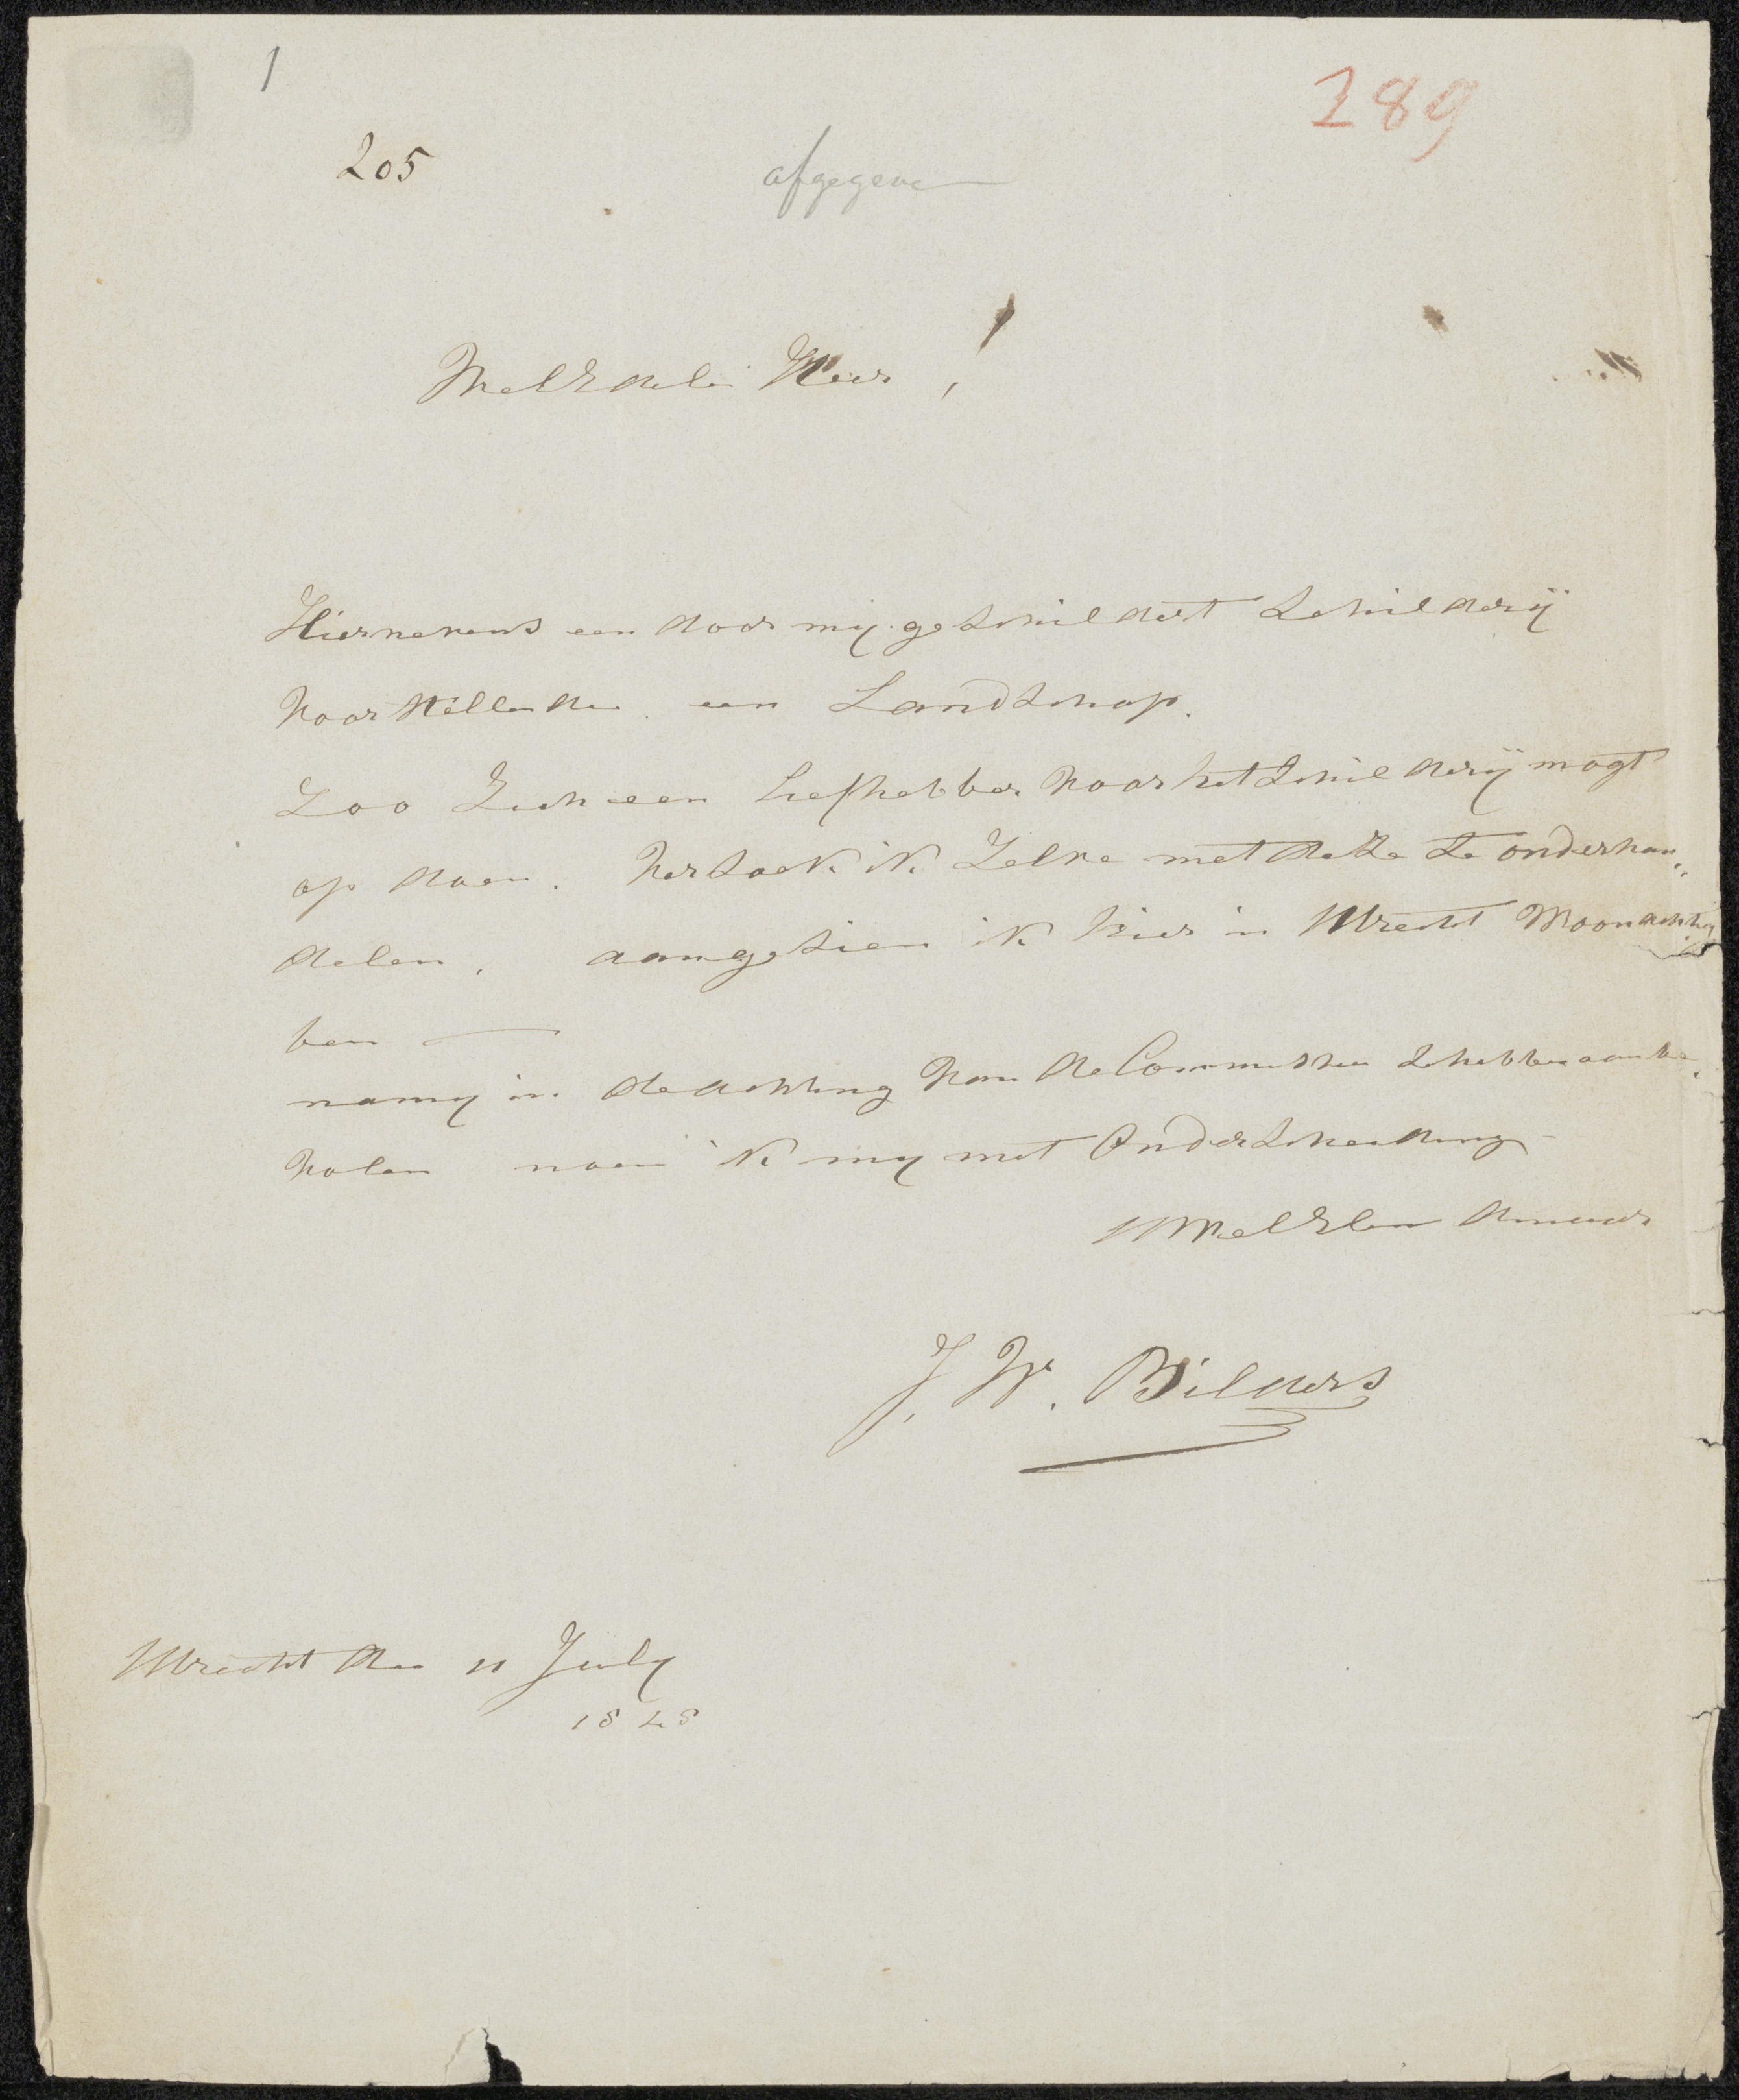 1
289
205
afgegeven
WelEdele Heer,
Hiernevens een door mij geschildert Schilderij
voorstellende een Landschap.
Zoo Zich een liefhebber voor het Schilderij mogt
op doen. verzoek ik Zelve met deze te onderhan„
delen, aangezien ik hier in Utrecht Woonachtig
ben
na mij in de achting van de Commissie te hebben aanbe„
volen noem ik mij met Onderscheiding
UWelEden Dienaar
J. W. Bilders
Utrecht den 11 July
1848